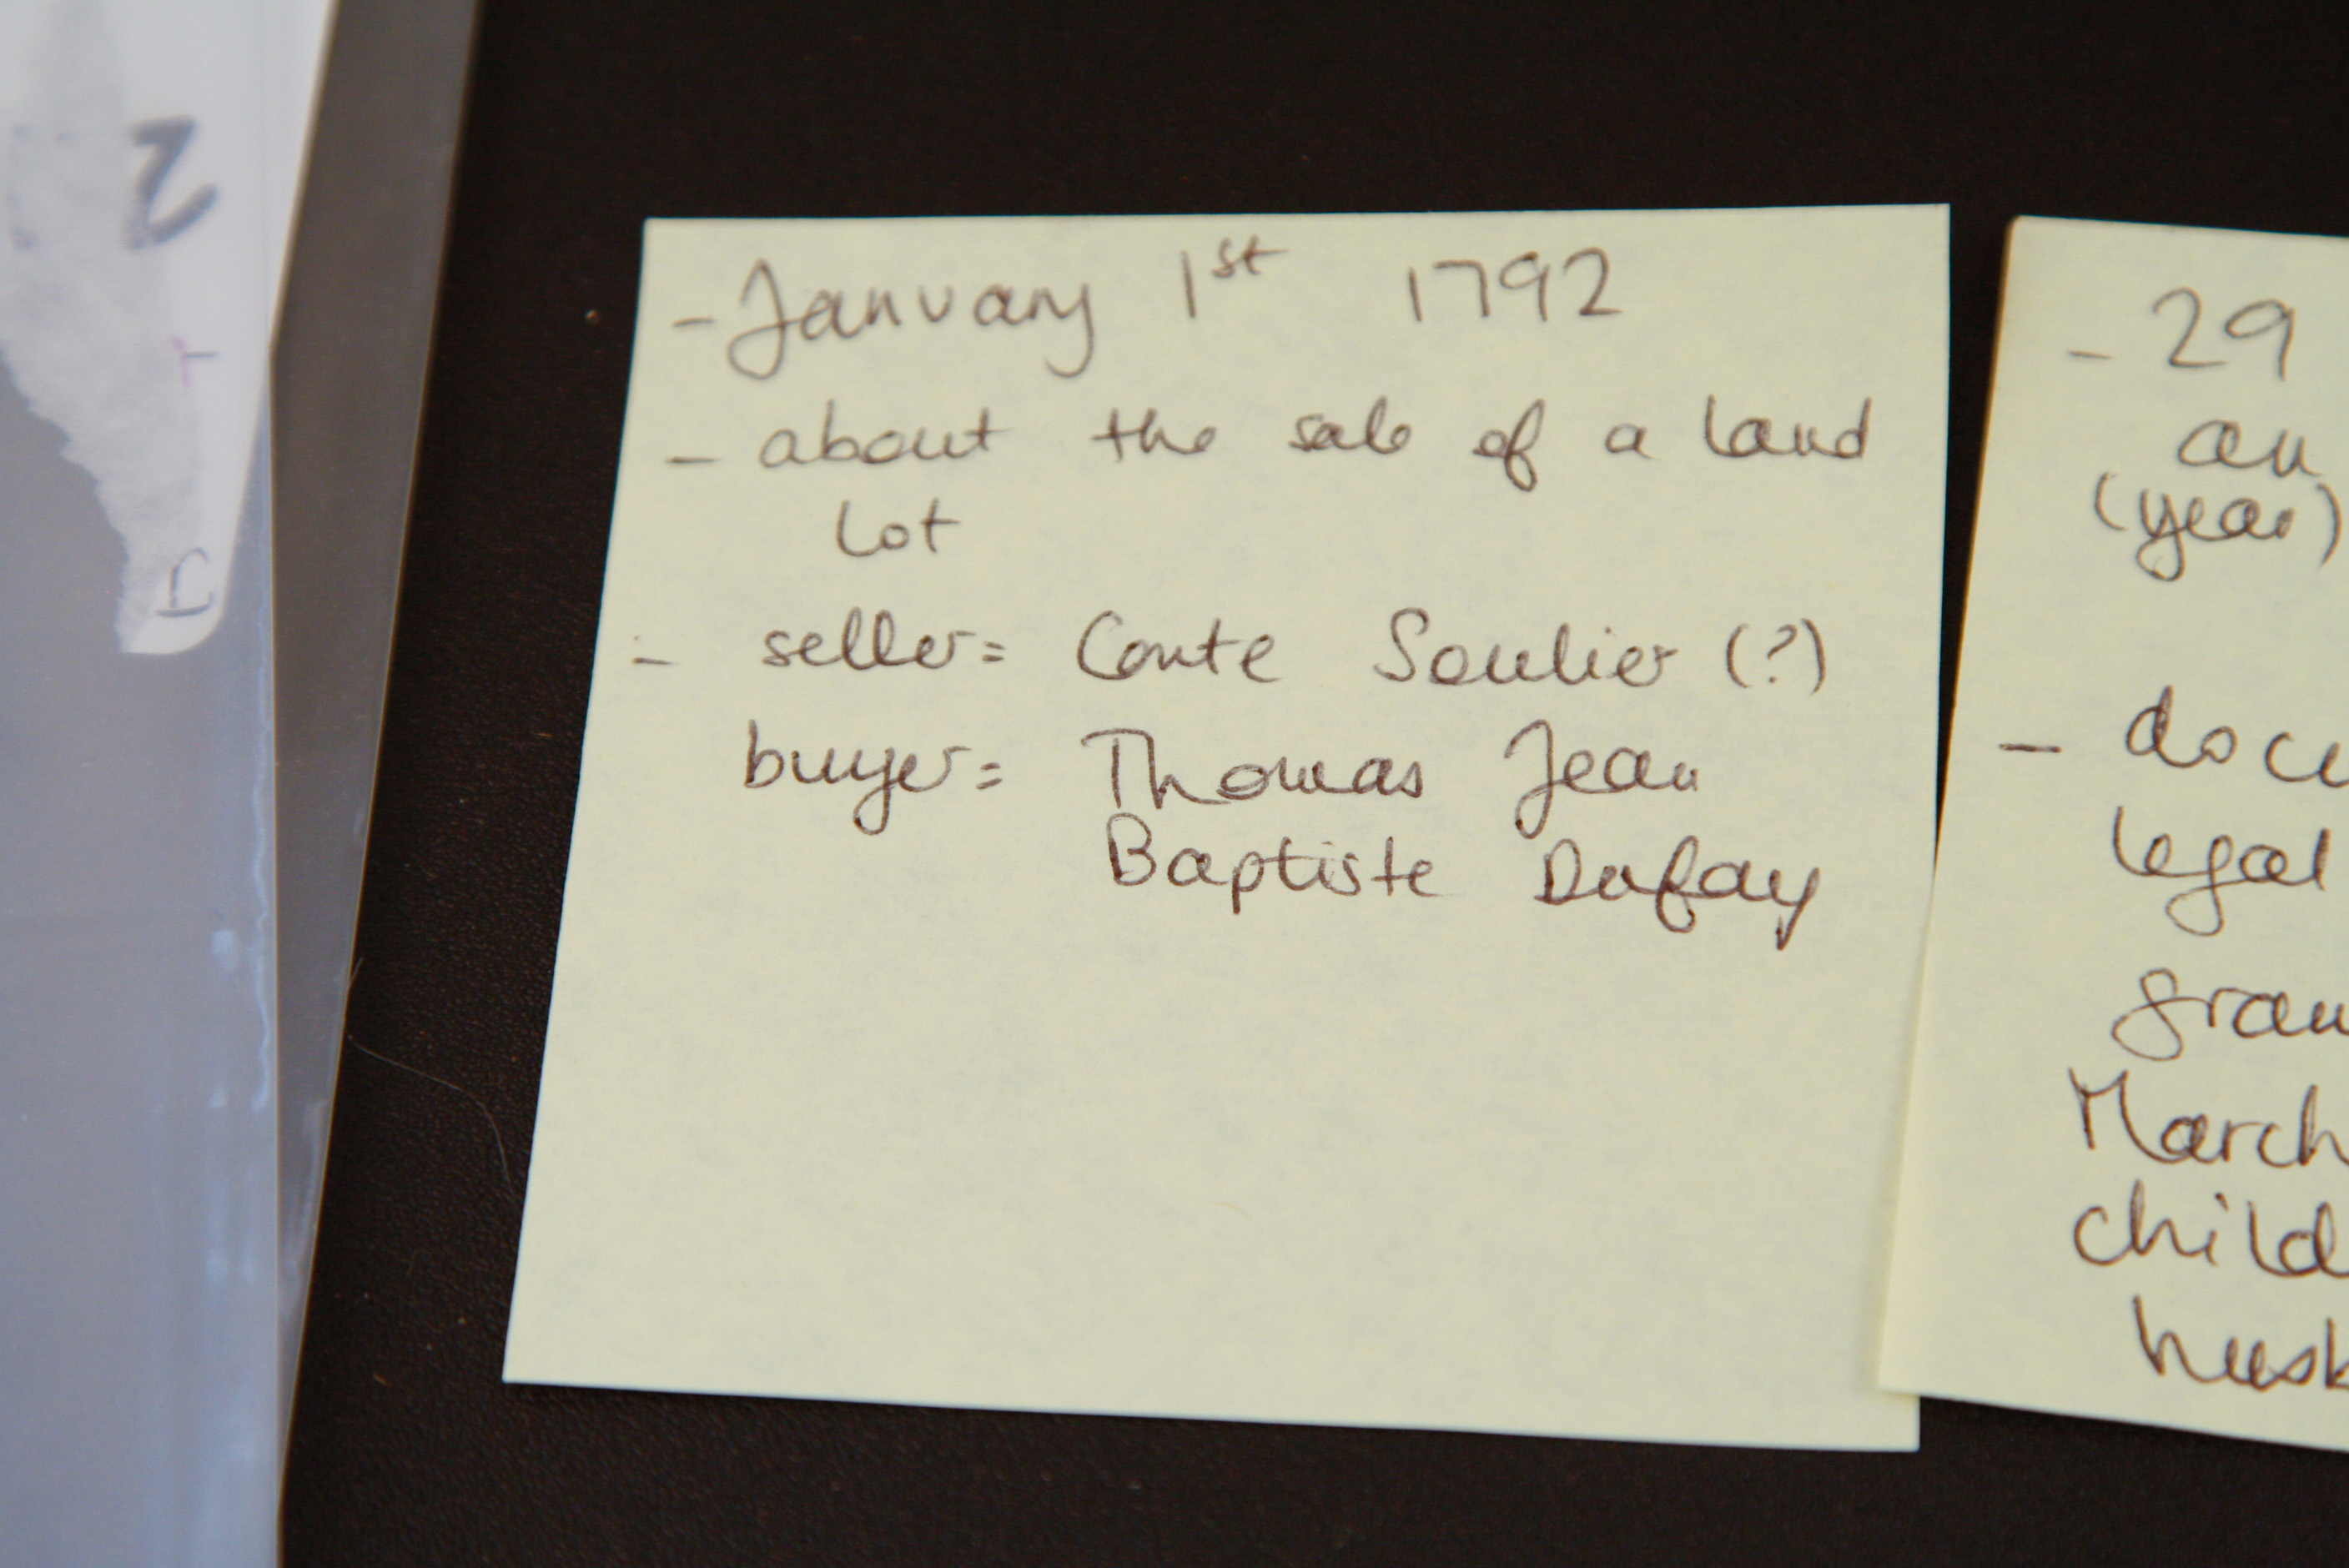 - January 1st 1792
- about the sale of a land
lot
- seller= Conte Soulier (?)
buyer= Thomas Jean
Baptiste Dufay
- 29
an
(year)
- docu
legal
gran
March
child
husb
2